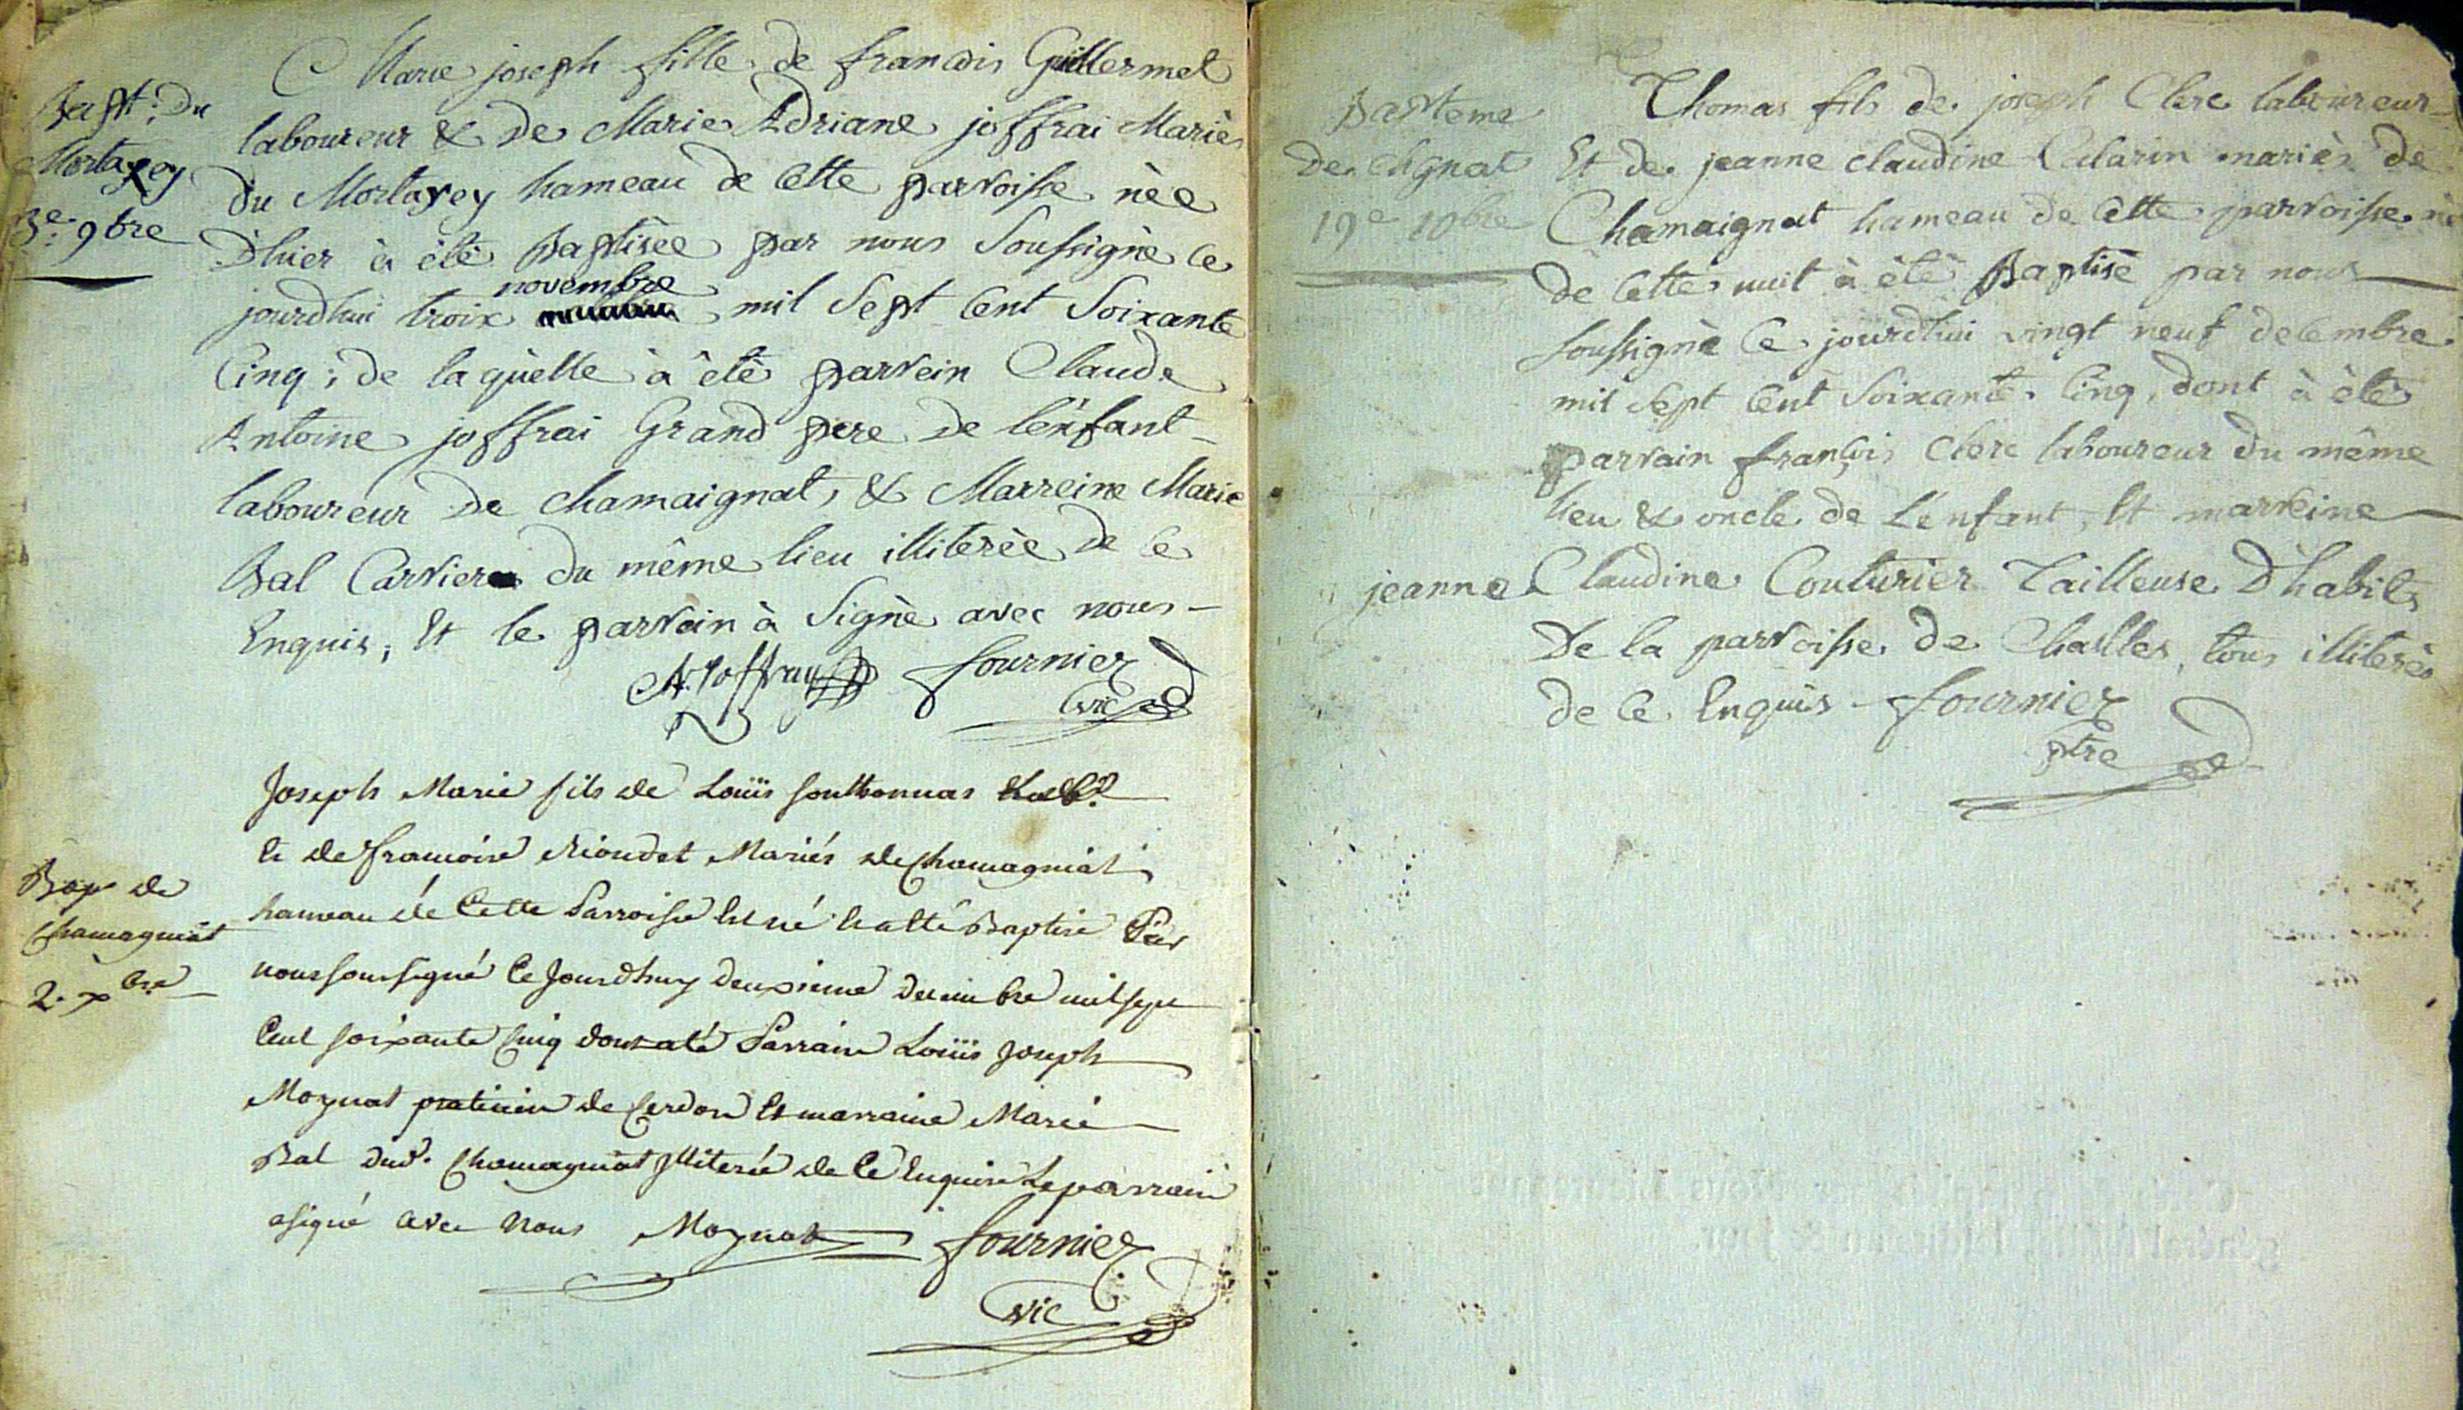 Bapt: du
Mortarey
3e. 9bre
Marie joseph fille de francois Guillermet
laboureur & de Marie Adriane joffrai Mariès
du Mortarey hameau de Cette parroisse nèe
D'hier à été Baptisèe par nous Soussignè Ce
novembre
jourdhui troix mil Sept Cent Soixante
Cinq; de laquèlle à étè parrein Claude
Antoine joffrai Grand pere de l'énfant
laboureur de chamaignat, & Marreine Marie
Bal Carrier du même lieu illiterèe de Ce
Enquis, Et le parrein à Signè avec nous
Joffray fournier
vic
Bap de
Chamagniat
2. xbre
Joseph Marie fils de Louis
et de francoise Riondet Mariés de Chamagniat
hameau de Cette Parroisse Est né Et a été Baptisé Par
nous soussigné Ce Jourdhuy deuxieme decembre mil sept
Cent soixante Cinq dont a été Parrain Louis Joseph
Moynat praticien de Cerdon Et marraine Marie
Bal dud. Chamagniat Illiterée de Ce Enquise Le parrain
a signé avec Nous Moynat fournier
vic
Bapteme
De Chgnat
19e 10bre
Thomas fils de joseph Clerc laboureur
Et de jeanne claudine mariès de
Chamaignat hameau de Cette parroisse nè
de Cette nuit à étè Baptisè par nous
soussignè Ce jourdhui vingt neuf decembre
mil Sept Cent Soixante Cinq, dont à étè
parrain françois Clerc laboureur du même
lieu & oncle de L'énfant, Et marreine
jeanne Claudine Couturier Tailleuse D'habits
De la parroisse de Challes, tous illiterès
de Ce Enquis fournier
ptre